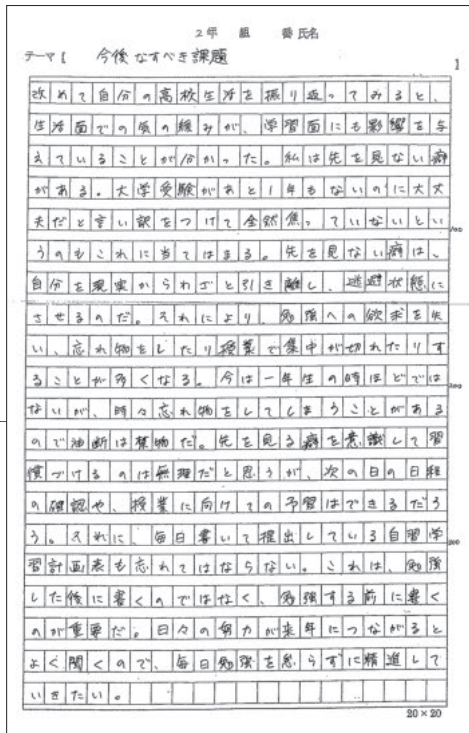 2年 組 番 氏名
テーマ【 今後なすべき課題 】
改めて自分の高校生活を振り返ってみると、
生活面での気の緩みが、学習面にも影響を与
えていることが分かった。私は先を見ない癖
がある。大学受験があと1年もないのに大丈
夫だと言い訳をつけて全然焦っていないとい
100
うのもこれに当てはまる。先を見ない癖は、
自分を現実からわざと引き離し、逃避状態に
させるのだ。それにより、勉強への欲求を失
い、忘れ物をしたり授業で集中が切れたりす
ることが多くなる。今は一年生の時ほどでは
200
ないが、時々忘れ物をしてしまうことがある
ので油断は禁物だ。先を見る癖を意識して習
慣づけるのは無理だと思うが、次の日の日程
の確認や、授業に向けての予習はできるだろ
う。それに、毎日書いて提出している自習学
300
習計画表も忘れてはならない。これは、勉強
した後に書くのではなく、勉強する前に書く
のが重要だ。日々の努力が来年につながると
よく聞くので、毎日勉強を怠らずに精進して
いきたい。
20×20